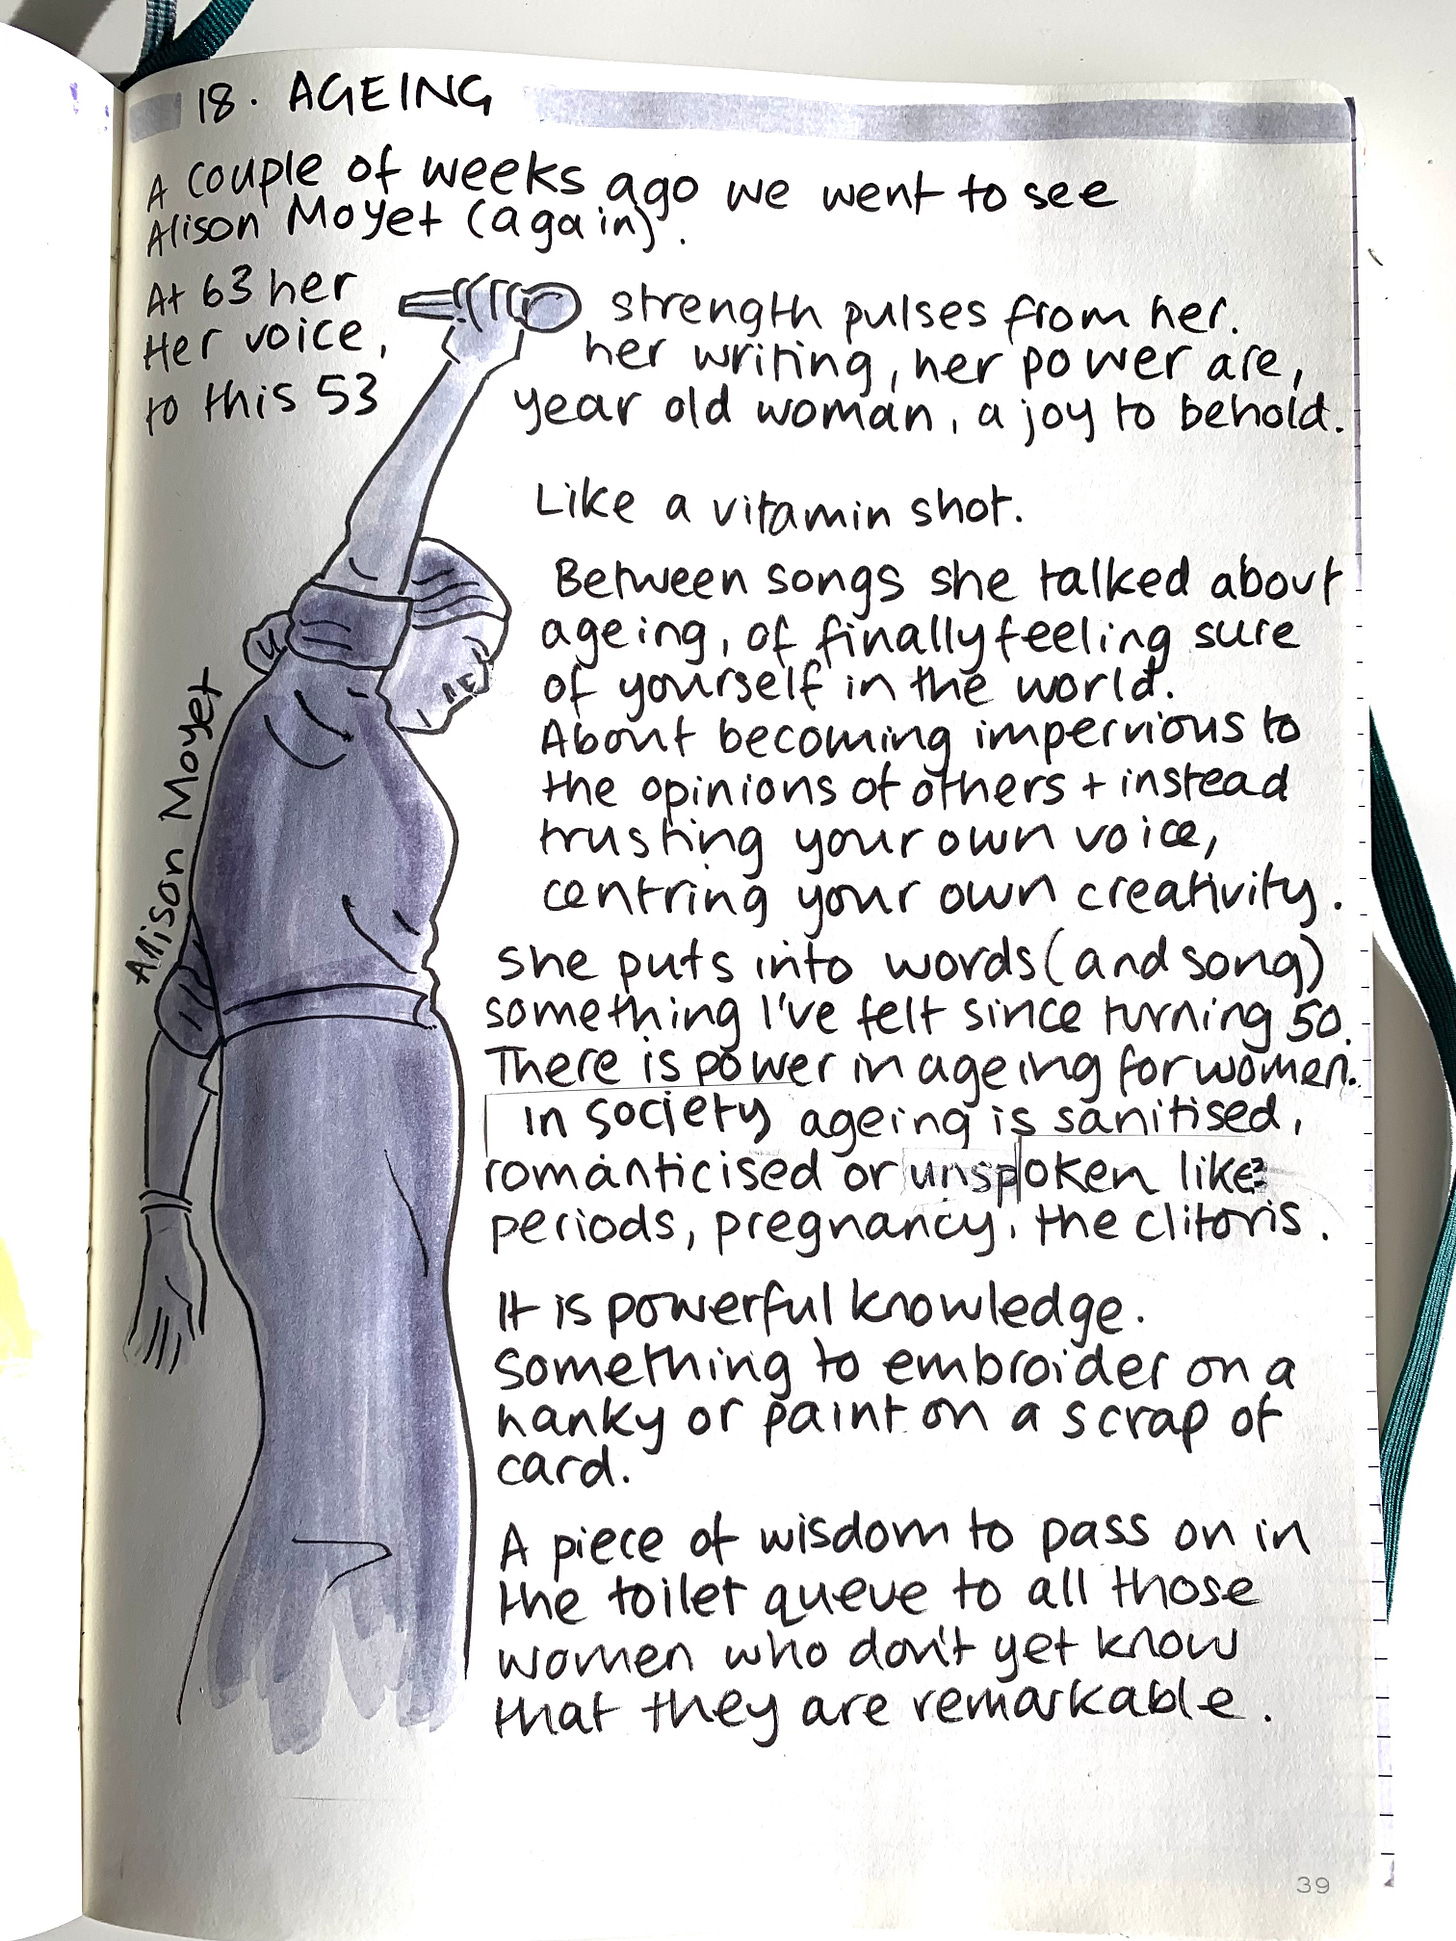 18. AGEING
A couple of weeks ago we went to see
Alison Moyet (again).
At 63 her strength pulses from her.
Her voice, her writing, her power are,
to this 53 year old woman, a joy to behold.
Like a vitamin shot.
Between songs she talked about
ageing, of finally feeling sure
of yourself in the world.
About becoming impervious to
the opinions of others + instead
trusting your own voice,
centring your own creativity.
she puts into words (and song)
something I've felt since turning 50.
There is power in ageing for women.
In society ageing is sanitised,
romanticised or unspoken like
periods, pregnancy, the clitoris.
It is powerful knowledge.
Something to embroider on a
hanky or paint on a scrap of
card.
A piece of wisdom to pass on in
the toilet queue to all those
women who don't yet know
that they are remarkable.
Alison Moyet
39